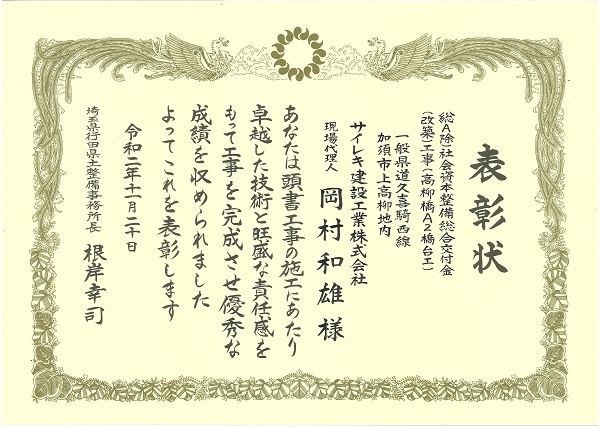 表彰状
総A除)社会資本整備総合交付金
(改築)工事(高柳橋A2橋台工)
一般県道久喜騎西線
加須市上高柳地内
サイレキ建設工業株式会社
現場代理人 岡村和雄 様
あなたは頭書工事の施工にあたり
卓越した技術と旺盛な責任感を
もって工事を完成させ優秀な
成績を収められました
よってこれを表彰します
令和二年十一月二十日
埼玉県行田県土整備事務所長 根岸幸司